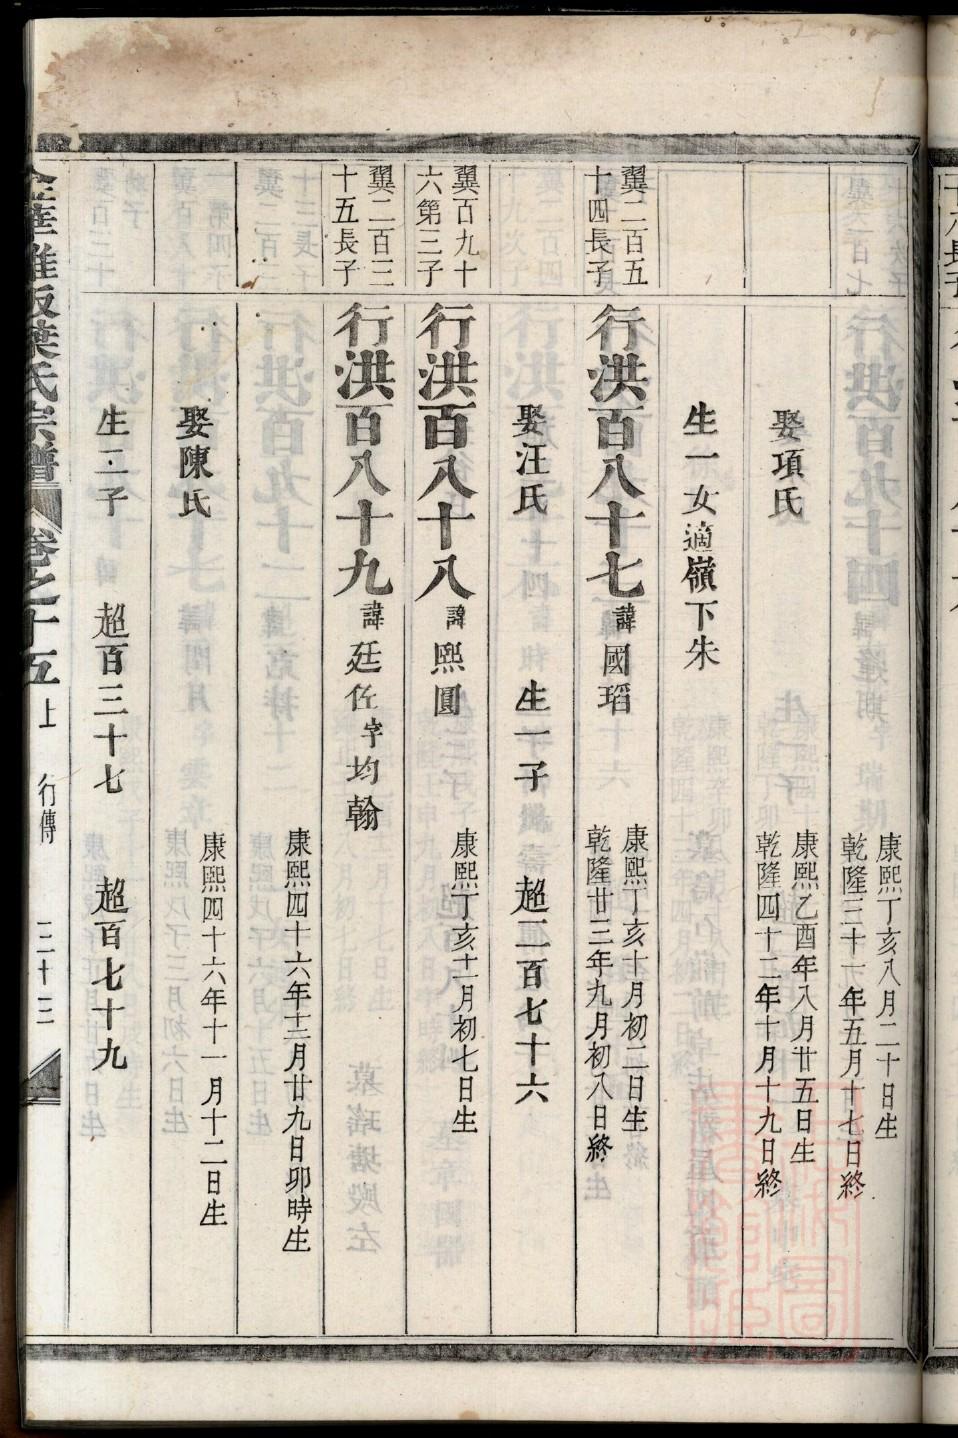 康熙丁亥八月二十日生
乾隆三十六年五月廿七日終
娶項氏
康熙乙酉年八月廿五日生
乾隆四十二年十月十九日終
生一女適嶺下朱
翼二百五
十四長子
行洪百八十七諱國瑫
康熙丁亥十月初二日生
乾隆廿三年九月初八日終
娶汪氏 生一子 超二百七十六
翼百九十
六第三子
行洪百八十八諱熙圓
康熙丁亥十一月初七日生
翼二百三
十五長子
行洪百八十九諱廷佐字均翰
康熙四十六年十二月廿九日卯時生
娶陳氏
康熙四十六年十一月十二日生
生二子 超百三十七 超百七十九
葉氏宗譜 卷之十五上 行傳 三十三